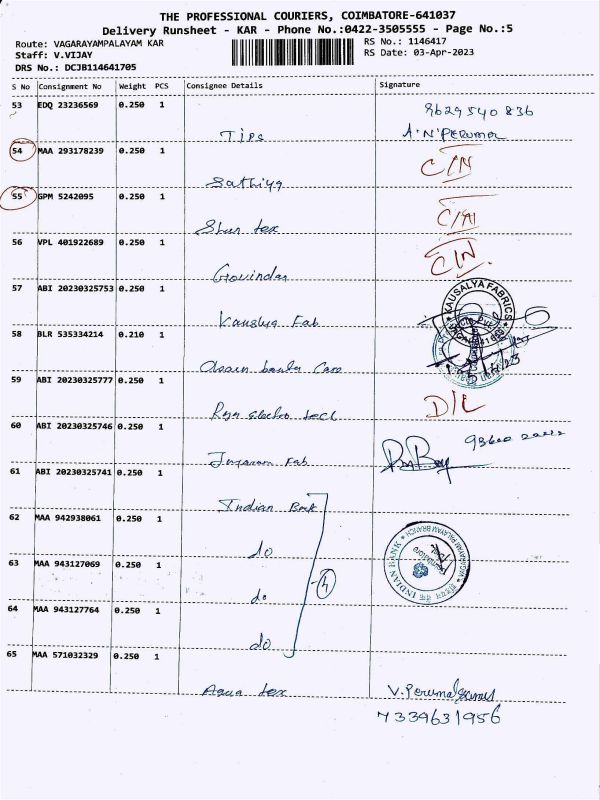 THE PROFESSIONAL COURIERS, COIMBATORE-641037
Delivery Runsheet - KAR - Phone No.:0422-3505555 - Page No.:5
Route: VAGARAYAMPALAYAM KAR RS No.: 1146417
Staff: V.VIJAY RS Date: 03-Apr-2023
DRS No.: DCJB114641705
S No Consignment No Weight PCS Consignee Details Signature
53 EDQ 23236569 0.250 1 9629540836
Tips A.N.PERUMAL
54 MAA 293178239 0.250 1 C/N
Sathiya
55 GPM 5242095 0.250 1 C/N
Shun tex
56 VPL 401922689 0.250 1 C/N
Govindar
57 ABI 20230325753 0.250 1 KAUSALYA FABRICS
Kauslya Fab
58 BLR 535334214 0.210 1
Care
59 ABI 20230325777 0.250 1 D/L
Raja electro tecl
60 ABI 20230325746 0.250 1
Fab
61 ABI 20230325741 0.250 1
Indian Bnk
62 MAA 942938061 0.250 1
do INDIAN BANK
63 MAA 943127069 0.250 1
do 4
64 MAA 943127764 0.250 1
do
65 MAA 571032329 0.250 1
Aqua tex V. Perumal
7339631956